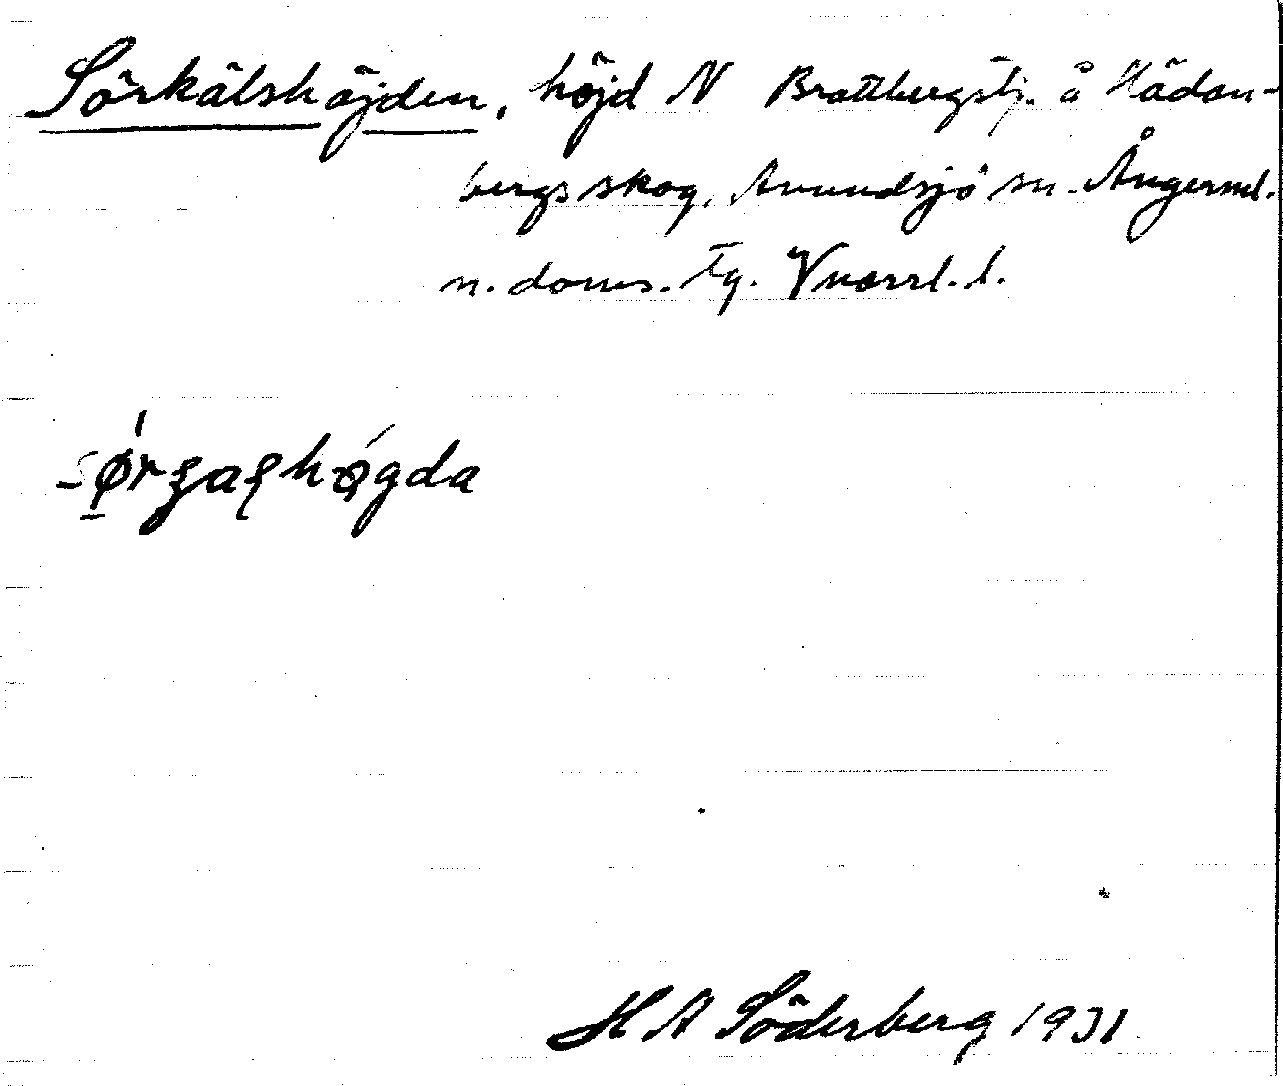 Sörkälshöjden, höjd N Brattbergstj. å Hädan-
bergs skog, Anundsjö sn. Ångerml.
n. doms. Tg. Vnorrl. l.
H A Söderberg 1931